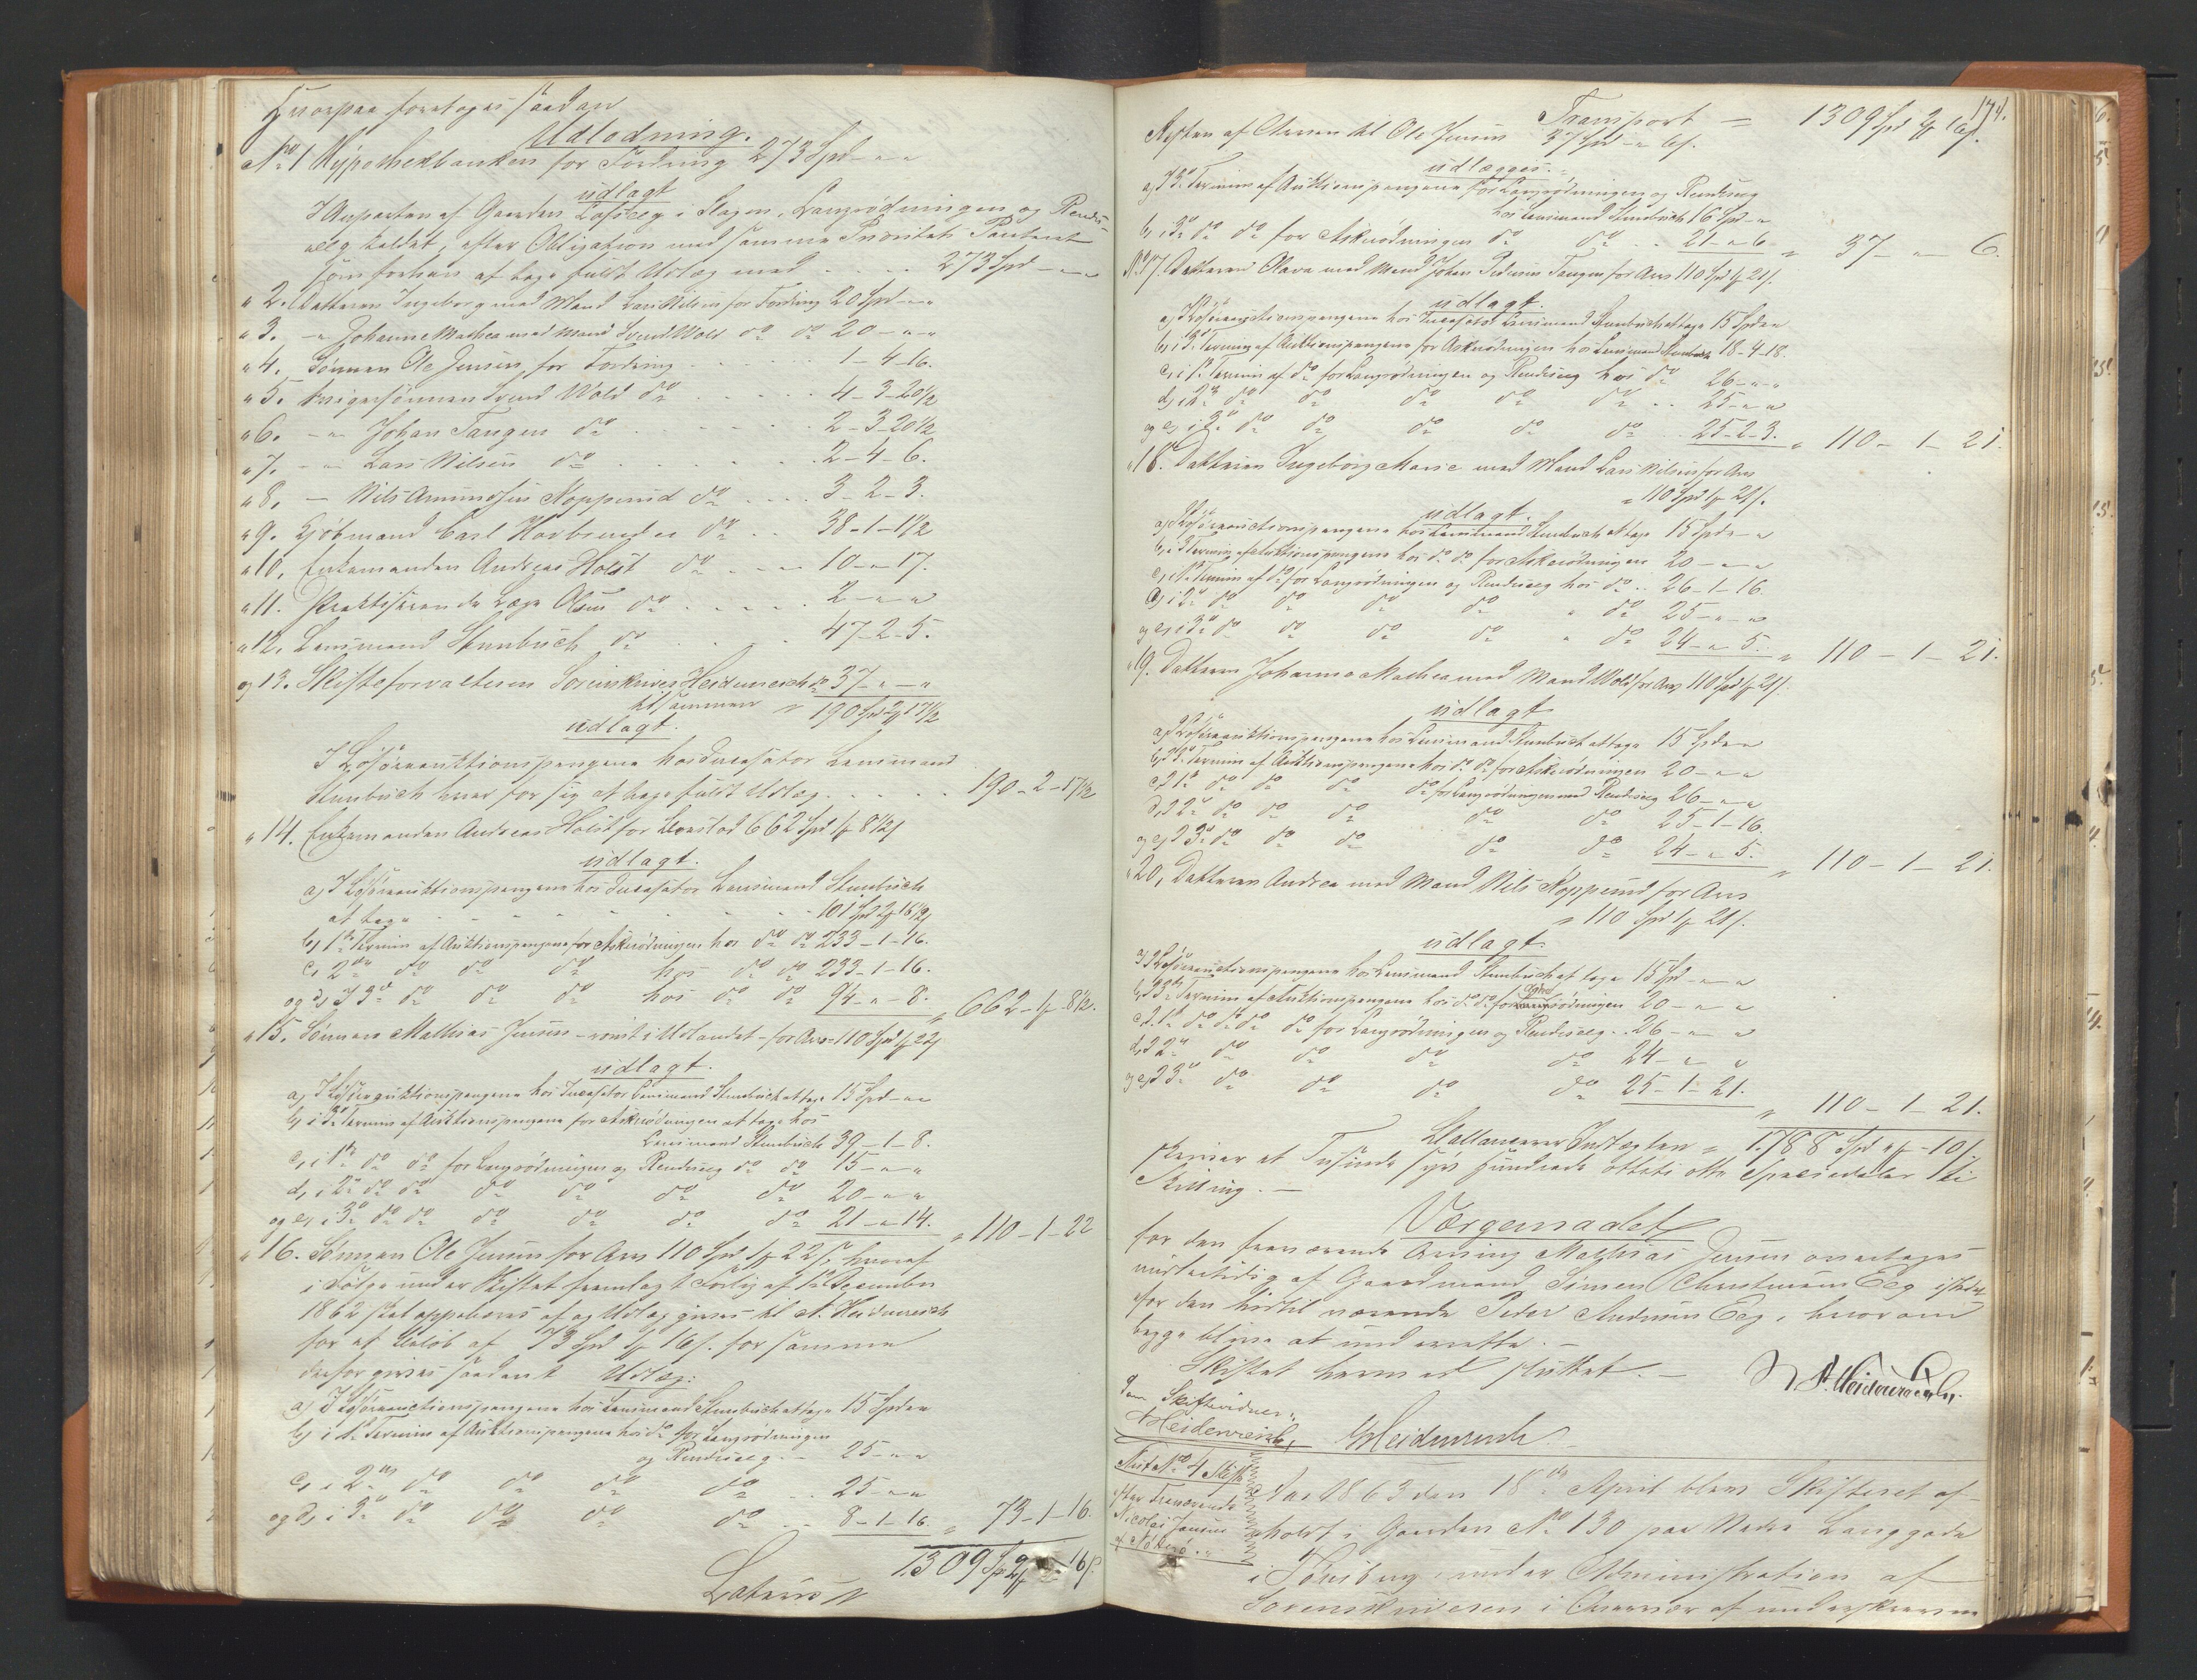 Hvorpaa foretoges saadan
Udlodning.
No 1 Hypothekbanken for Fordring 273 Spd - " "
udlagt
I Anparten af Gaarden i Slagen, Langrødningen og
kaldet, efter Obligation med samme Prioritets Panteret
som forhen at tage fuldt Udlæg med . . . 273 Spd - " "
" 2. Datteren Ingeborg med Mand Lars Nilsen for Fordring 20 Spd - " "
" 3. - " Johanne Mathea med Mand Svend Wold do do 20 - " - "
" 4. Sønnen Ole Jensen for Fordring . . . 1 - 4 - 16.
" 5. Svigersønnen Svend Wold do . . . . 4 - 3 - 20½
" 6. - " - Johan Tangen do . . . . 2 - 3 - 20½
" 7. - " - Lars Nilsen do . . . . 2 - 4 - 6.
" 8. - Nils Amundsen Nopperud do . . . 3 - 2 - 3.
" 9. Kjøbmand Carl do . . 38 - 1 - 1½
" 10. Enkemanden Andreas Holst do . . . 10 - " - 17.
" 11. Praktiserende Læge Olsen do . . . . 2 - " - "
" 12. Lensmand Stenbuch do . . . 47 - 2 - 5.
og 13. Skifteforvalteren Sorenskriver Heidenreich do 37 - " - "
tilsammen = 190 Spd 2 17½
udlagt.
I Løsøreauktionspengene hos Incassator Lensmand
Stenbuch hver for sig at tage fuldt Udlæg . . . . . 190 - 2 - 17½
" 14. Enkemanden Andreas Holst for 662 Spd 1 8½
udlagt.
a, I Løsøreauktionspengene hos Incassator Lensmand Stenbuch
at tage - - - - - 101 Spd 2 16½
b, 1ste Termin af Auktionspengene for Askerødningen hos do do 233 - 1 - 16.
c, 2den do do do hos do do 233 - 1 - 16.
og d, I 3die do do do hos do do 94 - " - 8. " 662 - 1 - 8½.
" 15. Sønnen Mathias Jensen - reist i Udlandet - for Arv = 110 Spd 1 22
udlagt.
a, I Løsøreauktionspengene hos Incassator Lensmand Stenbuch at tage 15 Spd - " "
b, i 3die Termin af Auktionspengene for Askerødningen at tage hos
Lensmand Stenbuch 39 - 1 - 8.
c, i 1ste do do for Langrødningen og do do 15 - " - "
d, i 2den do do do do do do 20 - " - "
og e, i 3die do do do do do do 21 - " - 14. = 110 - 1 - 22
" 16. Sønnen Ole Jensen for Arv 110 Spd 1 22, hvoraf
i Følge under Skiftet fremlagt af 12 December
1862 skal oppebæres af og Udlæg gives til A. Heidenreich
for et Beløb af 73 Spd 1 16. for samme
derfor gives saadant Udlæg:
a, I Løsøreauctionspengene hos Lensmand Stenbuch at tage 15 Spd " "
b, i 1ste Termin af Auktionspengene hos do for Langrødningen
og . - 25 - " - "
c, i 2den do do do do . . 25 - " "
og d, i 3die do do do do . . 8 - 1 - 16. " 73 - 1 - 16.
Lateris 1309 Sp 2 16
174.
Transport = 1309 Spd 2 16.
Resten af Arven til Ole Jensen 37 Spd - " 6.
udlægges.
a, I 3die Termin af Auktionspengene for Langrødningen og
hos Lensmand Stenbuch 16 Spd - "
b, i 3die do do for Askerødningen do do . . 21 - " 6 = 37 - " - 6.
No 17. Datteren Olava med Mand Johan Pedersen Tangen for Arv 110 Spd 1 21.
udlagt.
a, I Løsøreauctionspengene hos Incassator Lensmand Stenbuch at tage 15 Spd " "
b, i 3die Termin af Auktionspengene for Askerødningen hos Lensmand Stenbuch 18 - 4 - 18.
c, i 1ste Termin af do for Langrødningen og hos do 26 - " - "
d, i 2den do do do do do . . 25 - " "
og e, i 3die do do do do do . . 25 - 2 - 3. " 110 - 1 - 21.
" 18. Datteren Ingeborg Marie med Mand Lars Nilsen for Arv
= 110 Spd 1 21.
udlagt.
a, I Løsøreauctionspengene hos Lensmand Stenbuch at tage 15 Spd - " "
b, i 3die Termin af Auktionspengene hos do do for Askerødningen 20 - " - "
c, i 1ste Termin af do for Langrødningen og hos do . . 26 - 1 - 16.
d, i 2den do do do do " do 25 - " - "
og e, i 3die do do do do " do 24 - " 5. = 110 - 1 - 21.
" 19. Datteren Johanne Mathea med Mand Wold for Arv 110 Spd 1 21.
udlagt
a, I Løsøreauktionspengene hos Lensmand Stenbuch at tage 15 Spd " "
b, I 3die Termin af Auktionspengene hos do do for Askerødningen 20 - " "
c, I 1ste do do do do for Langrødningen med 26 - " "
d, I 2den do do do do do 25 - 1 - 16.
og e, I 3die do do do do do 24 - " 5. = 110 - 1 - 21.
" 20, Datteren Andrea med Mand Nils Nopperud for Arv
= 110 Spd 1 21.
udlagt.
a, I Løsøreauctionspengene hos Lensmand Stenbuch at tage 15 Spd - " "
b, I 3die Termin af Auktionspengene hos do do for Askerødningen 20 - " "
c, I 1ste do do do do for Langrødningen og . . 26 - " "
d, I 2den do do do do 24 - " "
og e, I 3die do do do do 25 - 1 - 21. " 110 - 1 - 21.
Indtægten = 1788 Spd " - 10
skriver et Tusinde syv Hundrede otteti otte Speciedaler ti
Skilling. -
Værgemaalet
for den fraværende Arving Mathias Jensen overtages
midlertidig af Gaardmand Simen Christensen Eeg istedet-
for den hidtil værende Peder Andersen Eeg, hvorom
begge blive at underrette. -
Skiftet hermed sluttet. - A. Heidenreich.
Som Skiftevidner:
Heidenreich, Heidenreich
No 4 Skifte
efter Fraværende
Nicolai Jensen
af Nøtterø.
Aar 1863 den 18de April blev Skifteret af-
holdt i Gaarden No 130 paa Nedre Langgade
i Tønsberg under Administration af
Sorenskriveren i Overvær af underskrevne